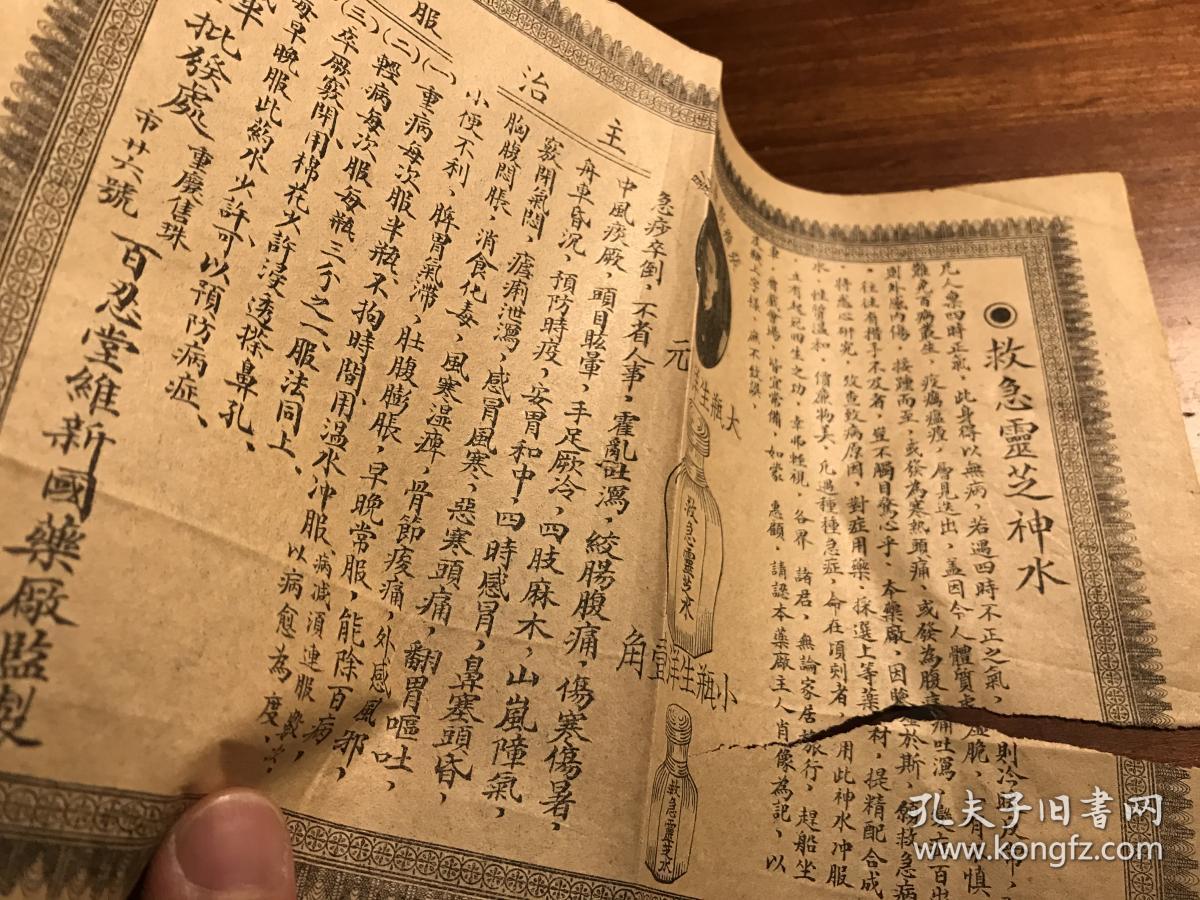 救急靈芝神水
凡人稟四時正氣，此身得以無病，若遇四時不正之氣，
難免百病叢生，疫癘瘟疫，層見迭出，蓋因今人體質
則外感內傷，接踵而至，或發為寒熱頭痛，或發為腹痛吐瀉
往往有措手不及者，豈不觸目驚心乎，本藥廠，因
，特悉心研究，攷查致病原因，對症用藥，採選上等藥材，提精配合成
水，性質溫和，價廉物美，凡遇種種急症，命在頃刻者，用此神水冲服
立有起死回生之功，幸弗輕視，各界諸君，無論家居旅行，趕船坐
車，會戲會場，皆宜常備，如蒙惠顧，請認本藥廠主人肖像為記，以
大瓶生
元
救急靈芝水
小瓶生洋壹角
救急靈芝水
主治
急痧卒倒，不省人事，霍亂吐瀉，絞腸腹痛，傷寒傷暑，
中風痰厥，頭目眩暈，手足厥冷，四肢麻木，山嵐障氣，
舟車昏沉，預防時疫，安胃和中，四時感冒，鼻塞頭昏，
竅閉氣悶，瘧痢泄瀉，感冒風寒，惡寒頭痛，翻胃嘔吐，
胸腹悶脹，消食化毒，風寒濕痺，骨節痠痛，外感風
小便不利，脾胃氣滯，肚腹膨脹，早晚常服，能除百病邪，
服
（一）重病每次服半瓶、不拘時間、用溫水冲服、病減須連服數次、以病愈為度、
（二）輕病每次服每瓶三分之一、服法同上、
（三）卒厥竅閉、用棉花少許浸透搽鼻孔、
每早晚服此葯水少許、可以預防病症、
批發處
重慶售珠
市廿六號
百忍堂維新國藥廠監製
孔夫子旧書网
www.kongfz.com